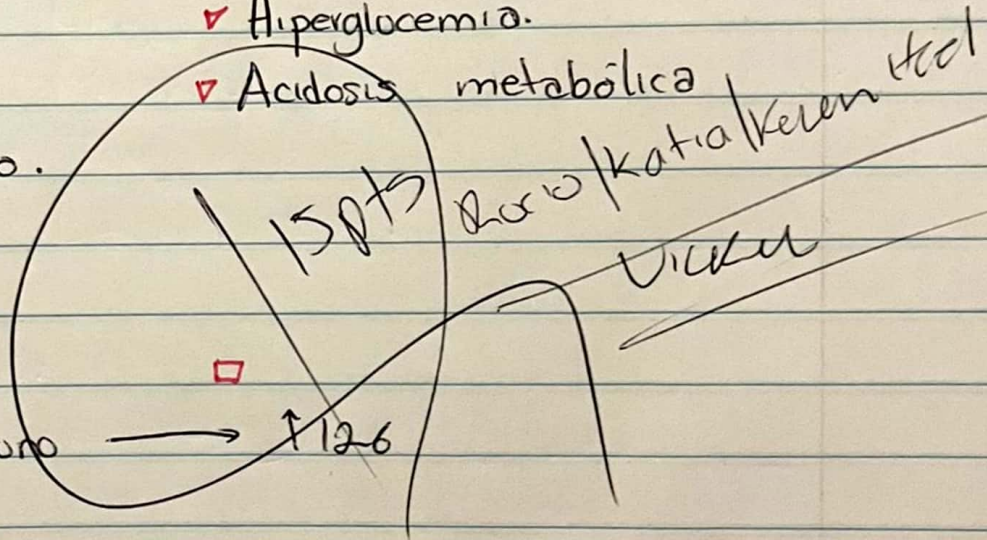 Hiperglocemia.
Acidosis metabólica
o.
15pts Rocio/Katia/Keren
uno → ↑126